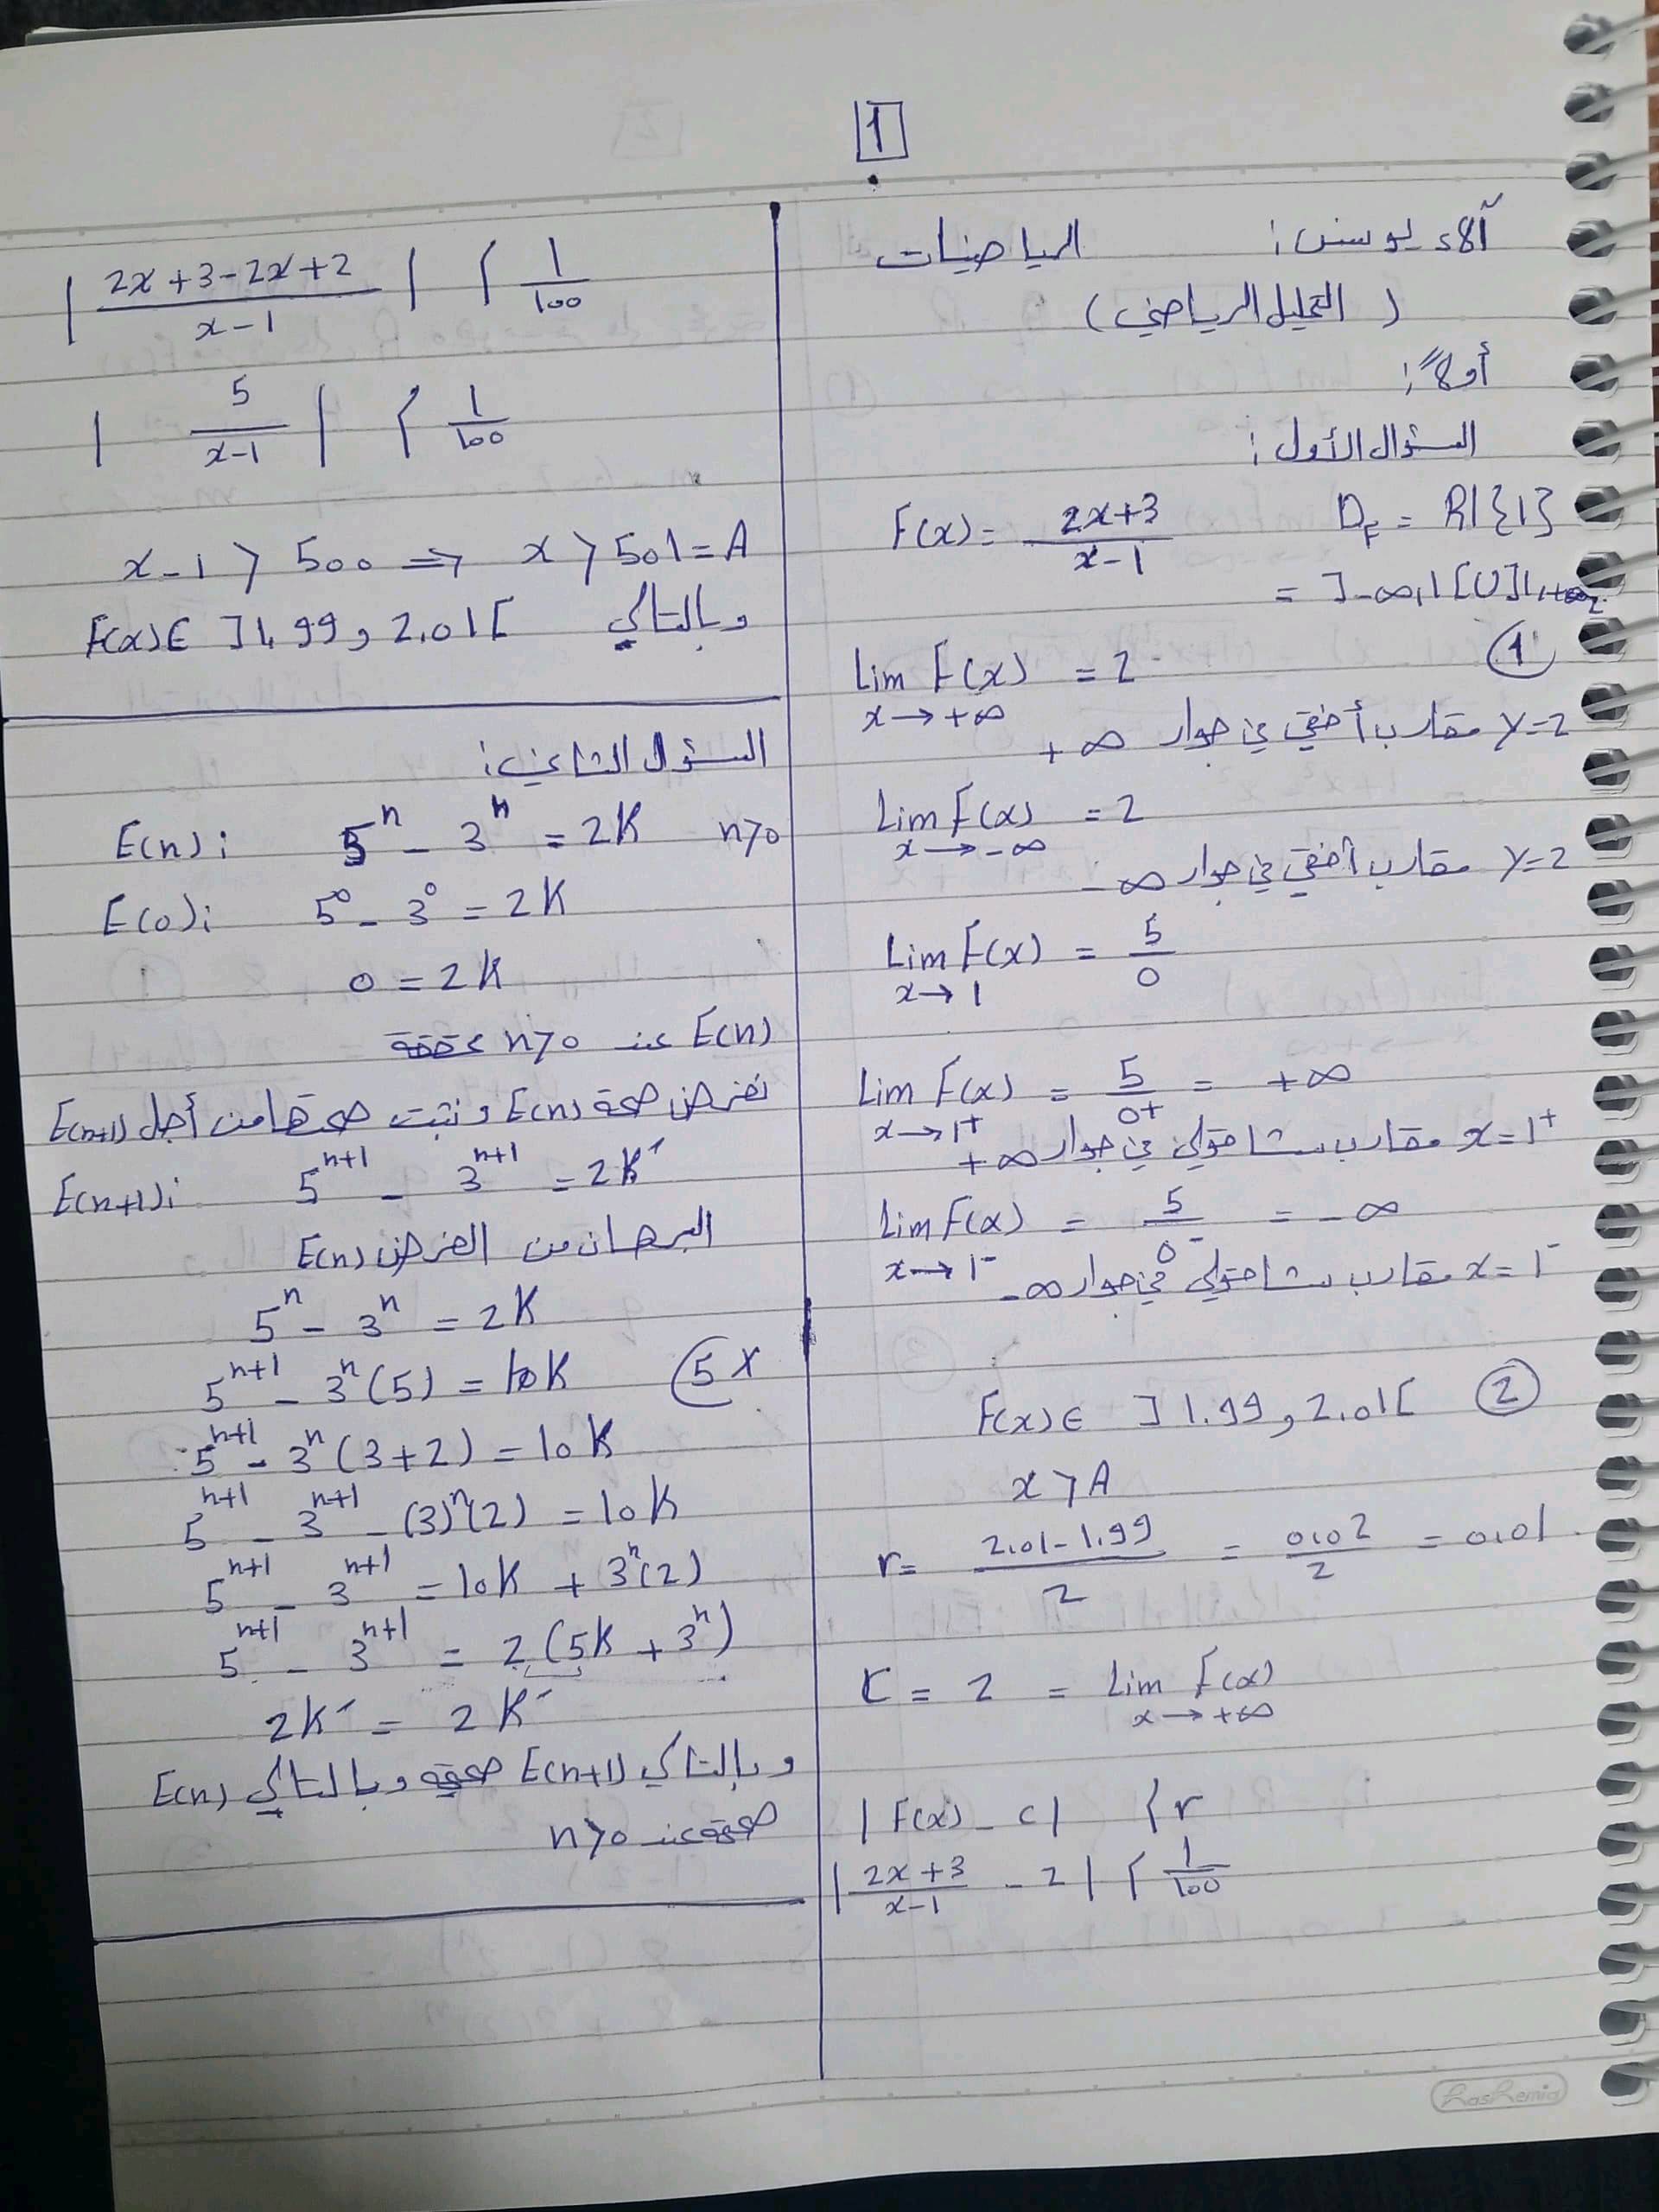 1
آلاء يوسف: الرياضيات
(التحليل الرياضي)
أولاً:
السؤال الأول:
F(x) = \frac{2x+3}{x-1} D_F = R\{1}
= ]-∞,1[U]1,+∞
① lim_{x→+∞} F(x) = 2
y=2 مقارب أفقي في جوار +∞
lim_{x→-∞} F(x) = 2
y=2 مقارب أفقي في جوار -∞
lim_{x→1} F(x) = \frac{5}{0}
lim_{x→1+} F(x) = \frac{5}{0+} = +∞
x=1+ مقارب شاقولي في جوار +∞
lim_{x→1-} F(x) = \frac{5}{0-} = -∞
x=1- مقارب شاقولي في جوار -∞
② F(x) ∈ ]1.99 , 2.01[
x > A
r = \frac{2.01-1.99}{2} = \frac{0.02}{2} = 0.01
C = 2 = lim_{x→+∞} F(x)
|F(x) - c| < r
|\frac{2x+3}{x-1} - 2| < \frac{1}{100}
|\frac{2x+3-2x+2}{x-1}| < \frac{1}{100}
|\frac{5}{x-1}| < \frac{1}{100}
x-1 > 500 ⇒ x > 501 = A
وبالتالي F(x) ∈ ]1.99 , 2.01[
السؤال الثاني:
E(n): 5^n - 3^n = 2K n>0
E(0): 5^0 - 3^0 = 2K
0 = 2K
E(n) عند n>0 محققة
نفرض صحة E(n) ونثبت صحتها من أجل E(n+1)
E(n+1): 5^{n+1} - 3^{n+1} = 2K'
البرهان من الفرض E(n)
5^n - 3^n = 2K
5^{n+1} - 3^n(5) = 10K 5×
5^{n+1} - 3^n(3+2) = 10K
5^{n+1} - 3^{n+1} - (3)^n(2) = 10K
5^{n+1} - 3^{n+1} = 10K + 3^n(2)
5^{n+1} - 3^{n+1} = 2(5K + 3^n)
2K' = 2K'
وبالتالي E(n+1) صحيحة وبالتالي E(n)
صحيحة عند n>0
HasHemia